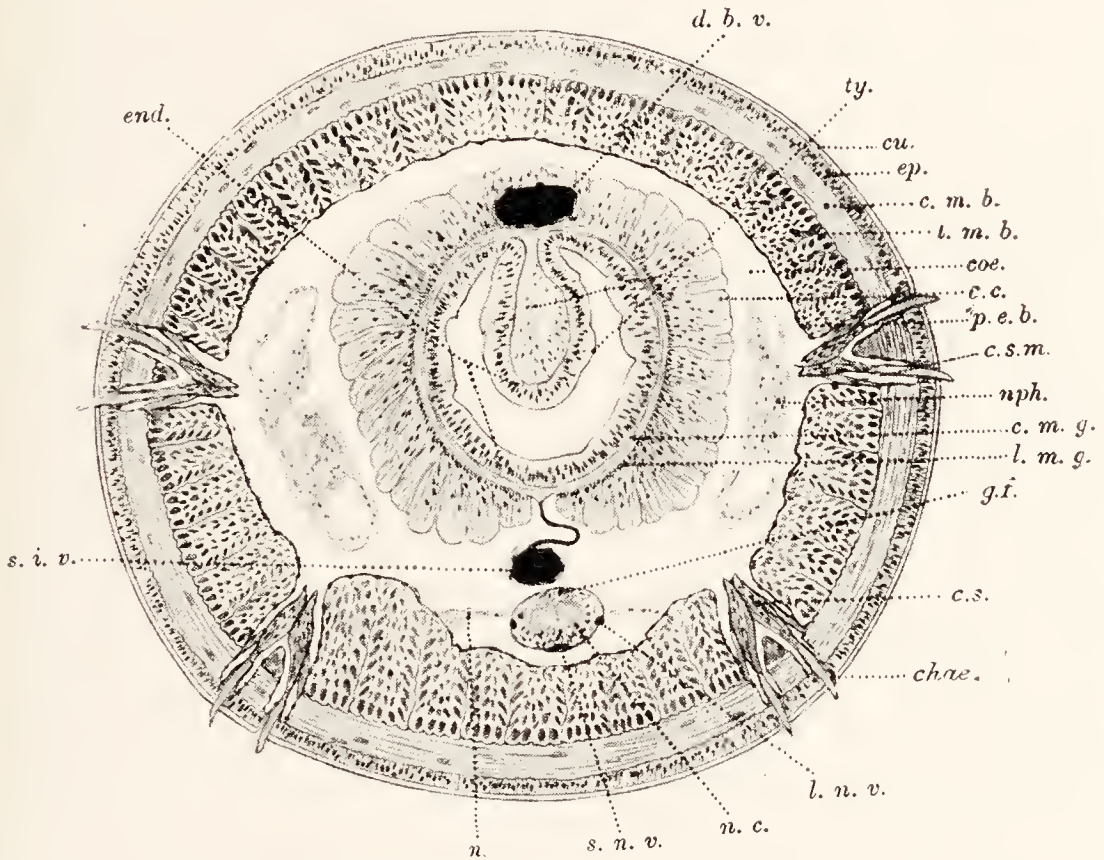 d. b. v.
ty.
end.
cu.
ep.
c. m. b.
l. m. b.
coe.
c.c.
p.e.b.
c.s.m.
nph.
c. m. g.
l. m. g.
g.f.
s. i. v.
c.s.
chae.
l. n. v.
n. c.
s. n. v.
n.